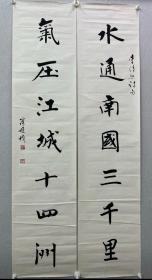 水通南國三千里
氣壓江城十四洲